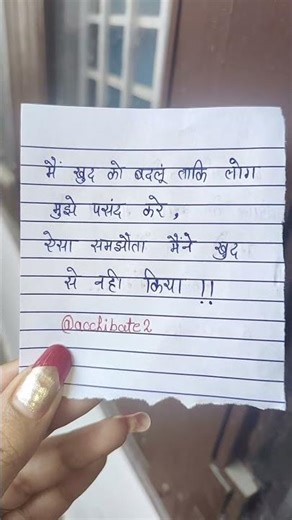 मैं खुद को बदलूं ताकि लोग
मुझे पसंद करे,
ऐसा समझौता मैंने खुद
से नही किया !!
@acchibate2